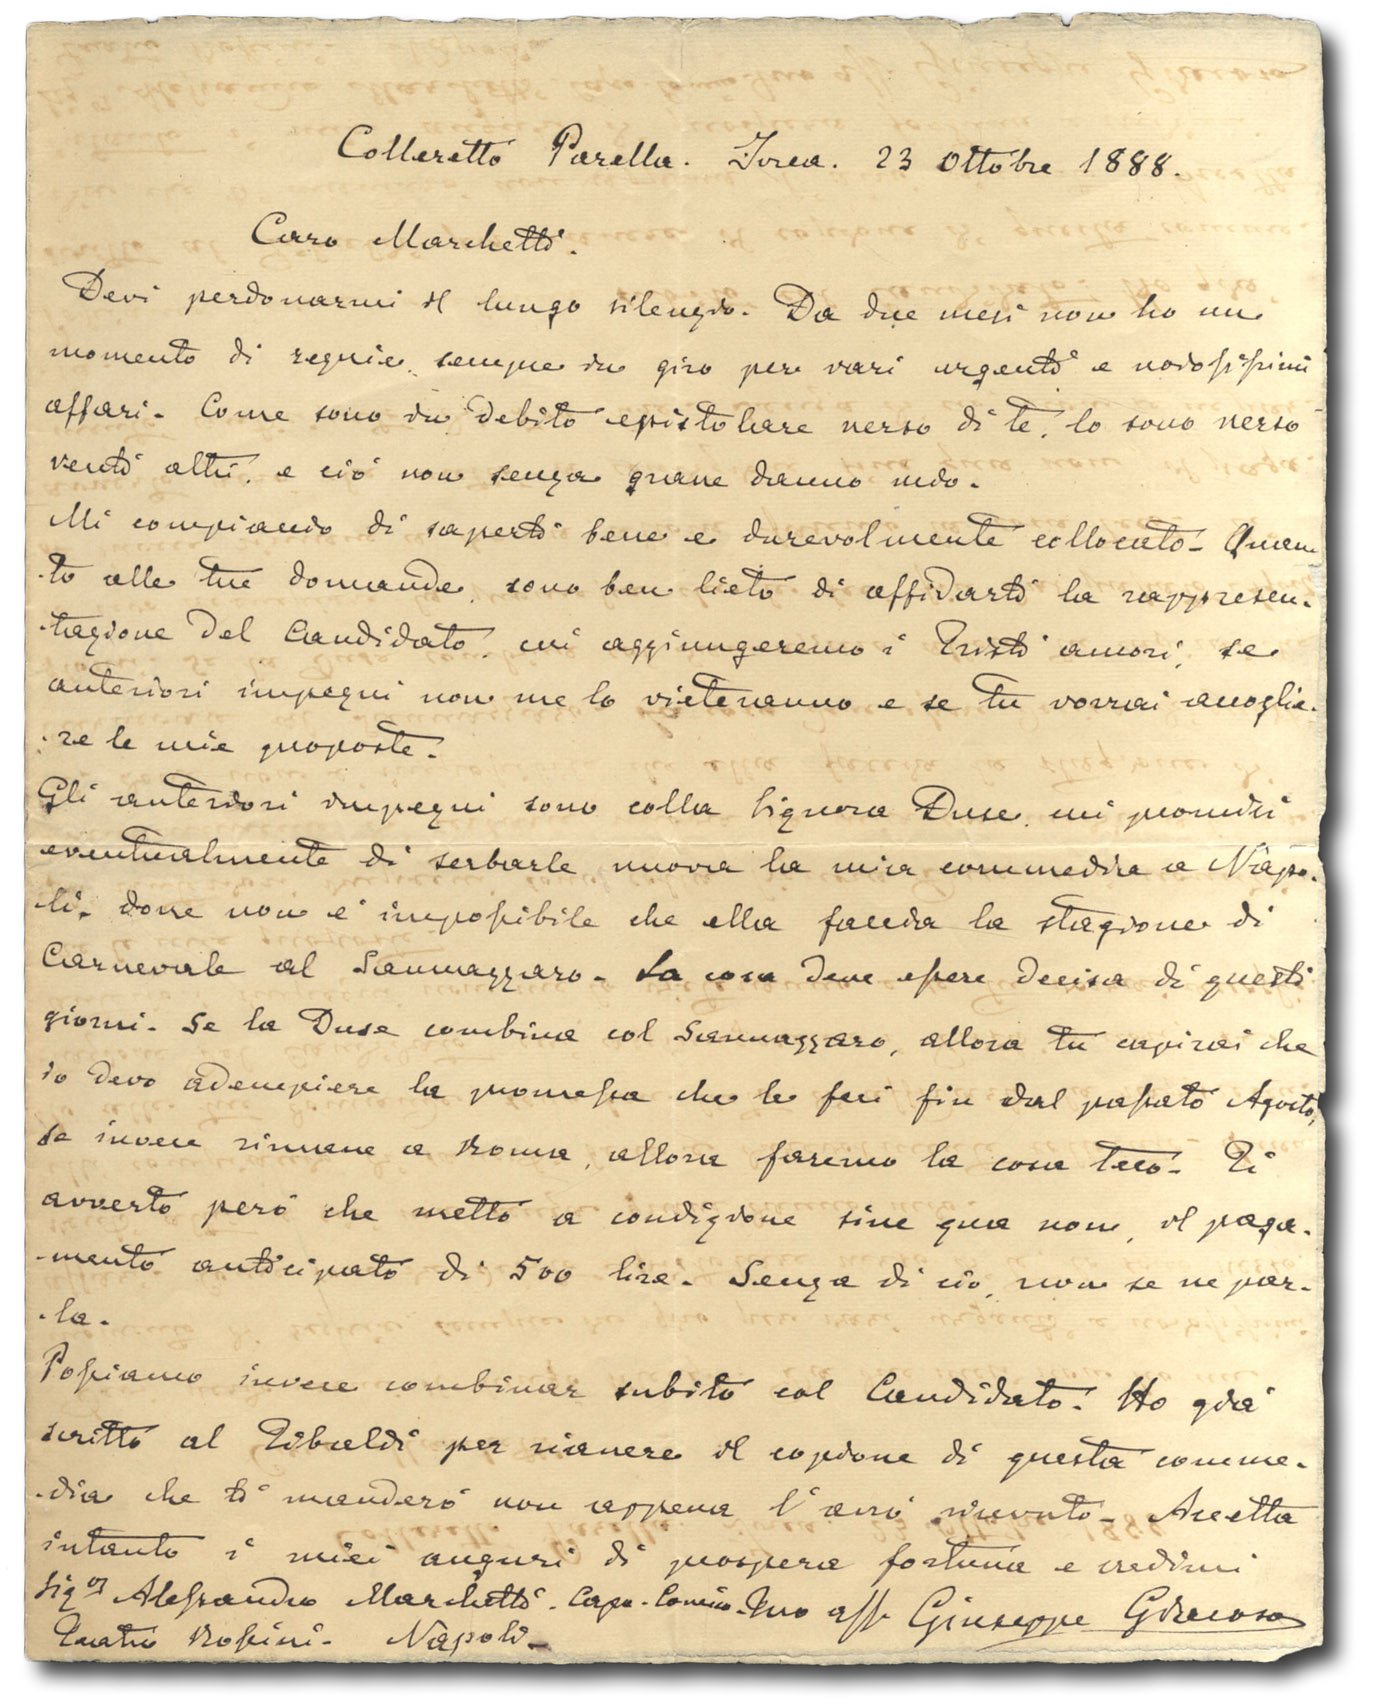 Colleretto Parella. Ivrea. 23 Ottobre 1888.
Caro Marchetti.
Devi perdonarmi il lungo silenzio. Da due mesi non ho un
momento di requie, sempre in giro per vari urgenti e noiosissimi
affari. Come sono in debito epistolare verso di te, lo sono verso
venti altri, e ciò non senza grave danno mio.
Mi compiaccio di saperti bene e durevolmente collocato. Quan
-to alle tue domande, sono ben lieto di affidarti la rappresen-
-tazione del Candidato, cui aggiungeremo i Tristi amori, se
anteriori impegni non me lo vieteranno e se tu vorrai accoglie-
-re le mie proposte.
Gli anteriori impegni sono colla Signora Duse, cui promisi
eventualmente di serbarle nuova la mia commedia a Napo-
-li, dove non è impossibile che ella faccia la stagione di
Carnevale al Sannazzaro. La cosa deve essere decisa di questi
giorni. Se la Duse combina col Sannazzaro, allora tu capirai che
io devo adempiere la promessa che le feci fin dal passato Agosto,
se invece rimane a Roma, allora faremo la cosa teco. Ti
avverto però che metto a condizione sine qua non, il paga-
-mento anticipato di 500 lire. Senza di ciò, non se ne par-
-la.
Possiamo invece combinar subito col Candidato. Ho già
scritto al Tibaldi per riavere il copione di questa comme-
-dia che ti manderò non appena l'avrò ricevuto. Accetta
intanto i miei auguri di prospera fortuna e credimi
Sigor Alessandro Marchetti. Capo-Comico. Tuo aff. Giuseppe Giacosa
Teatro Rossini. Napoli.